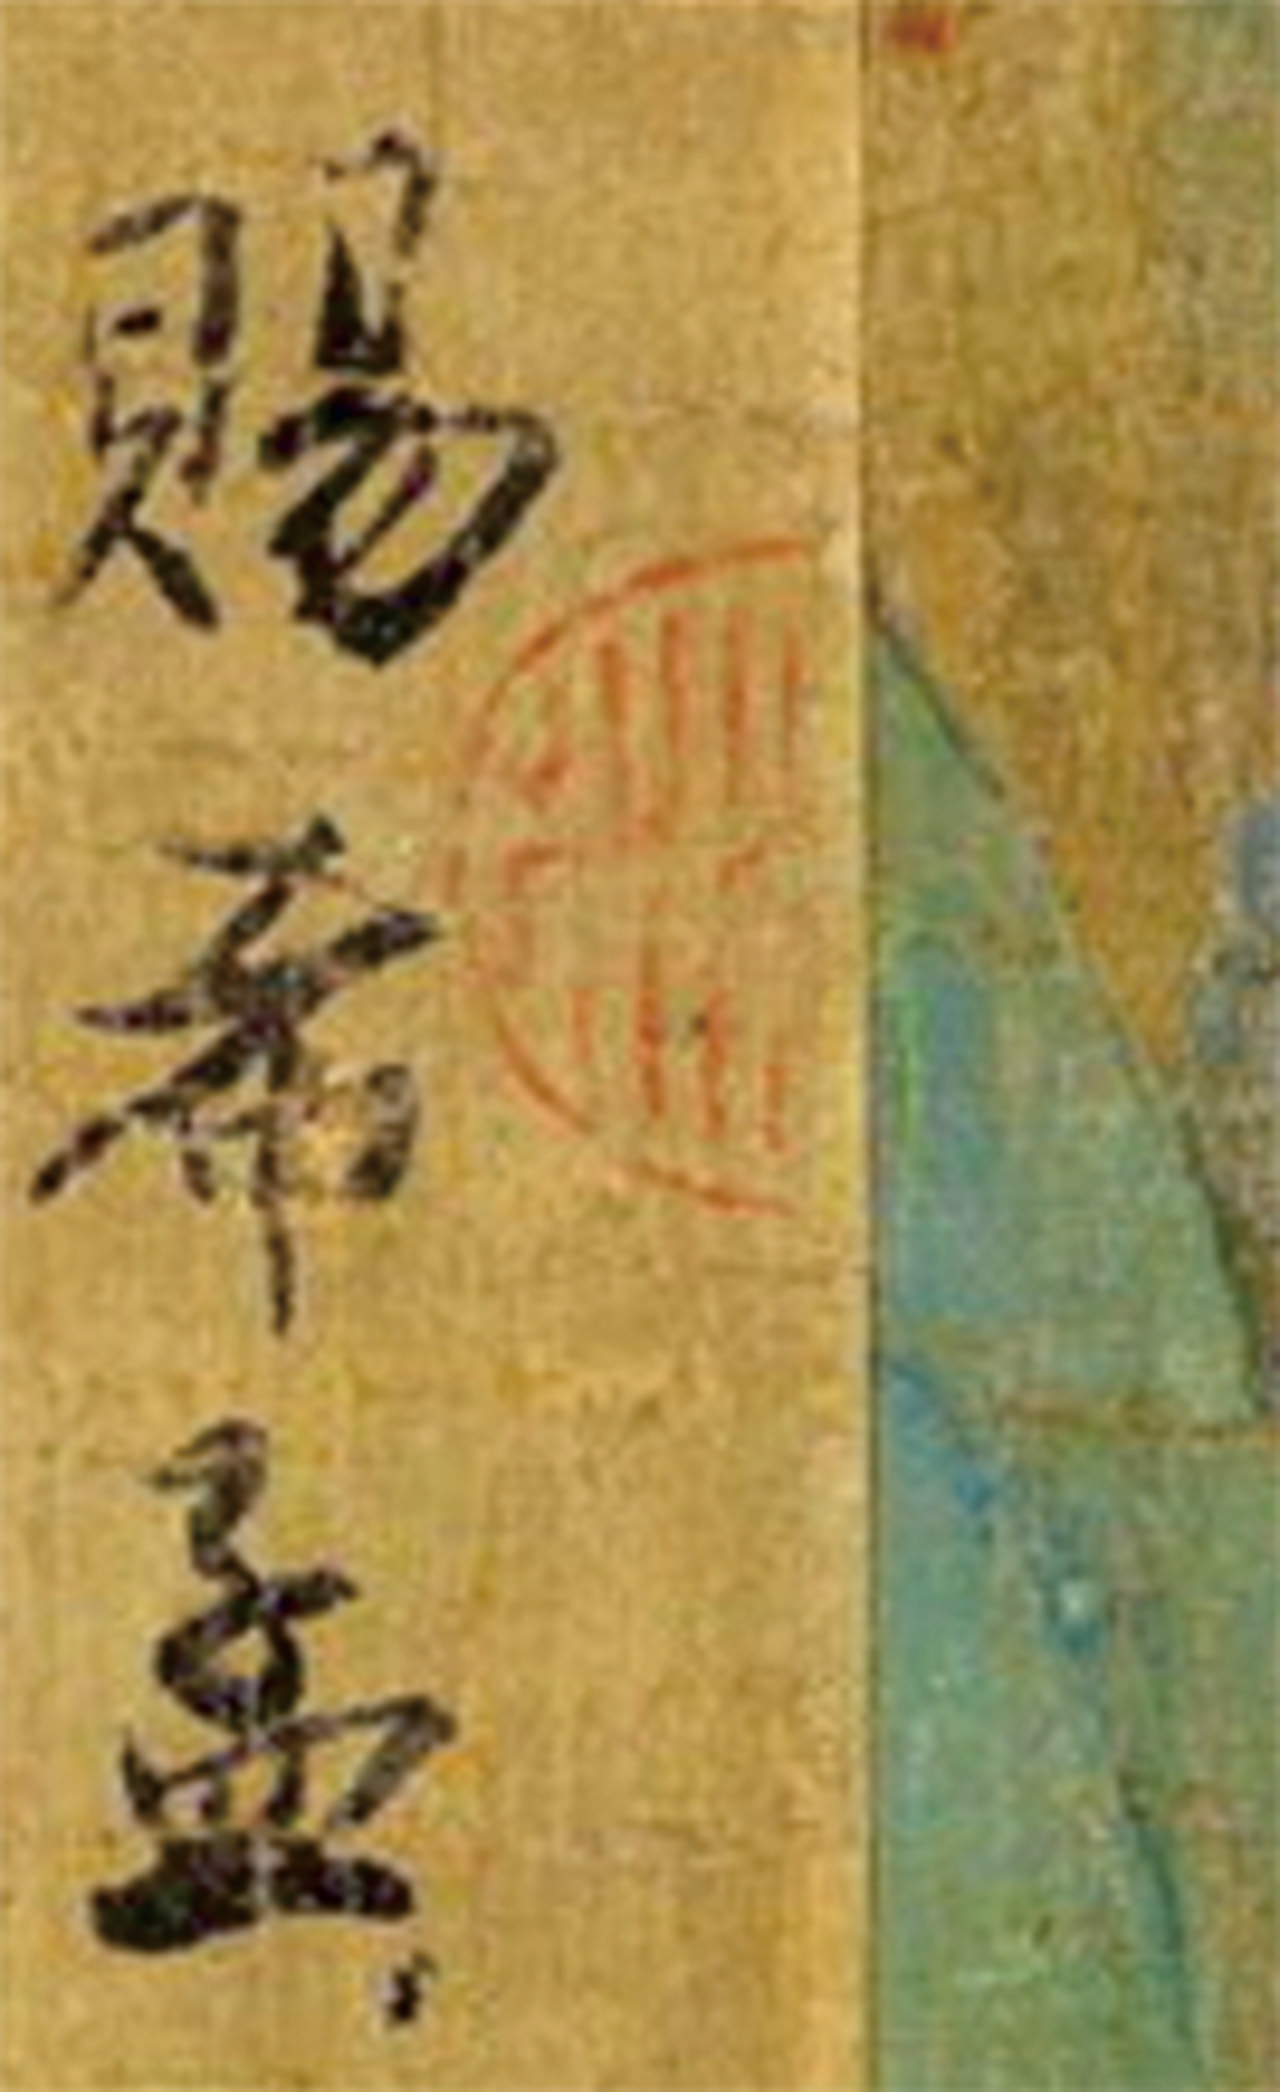 賜希孟